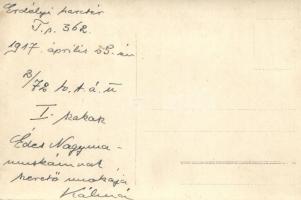 Erdélyi harctér
T.p. 362.
1917. április 25.-én
B/72 b.t.á.ü
I. kakak
Édes Nagyma-
muskáimat
szerető unokája
Kálmán